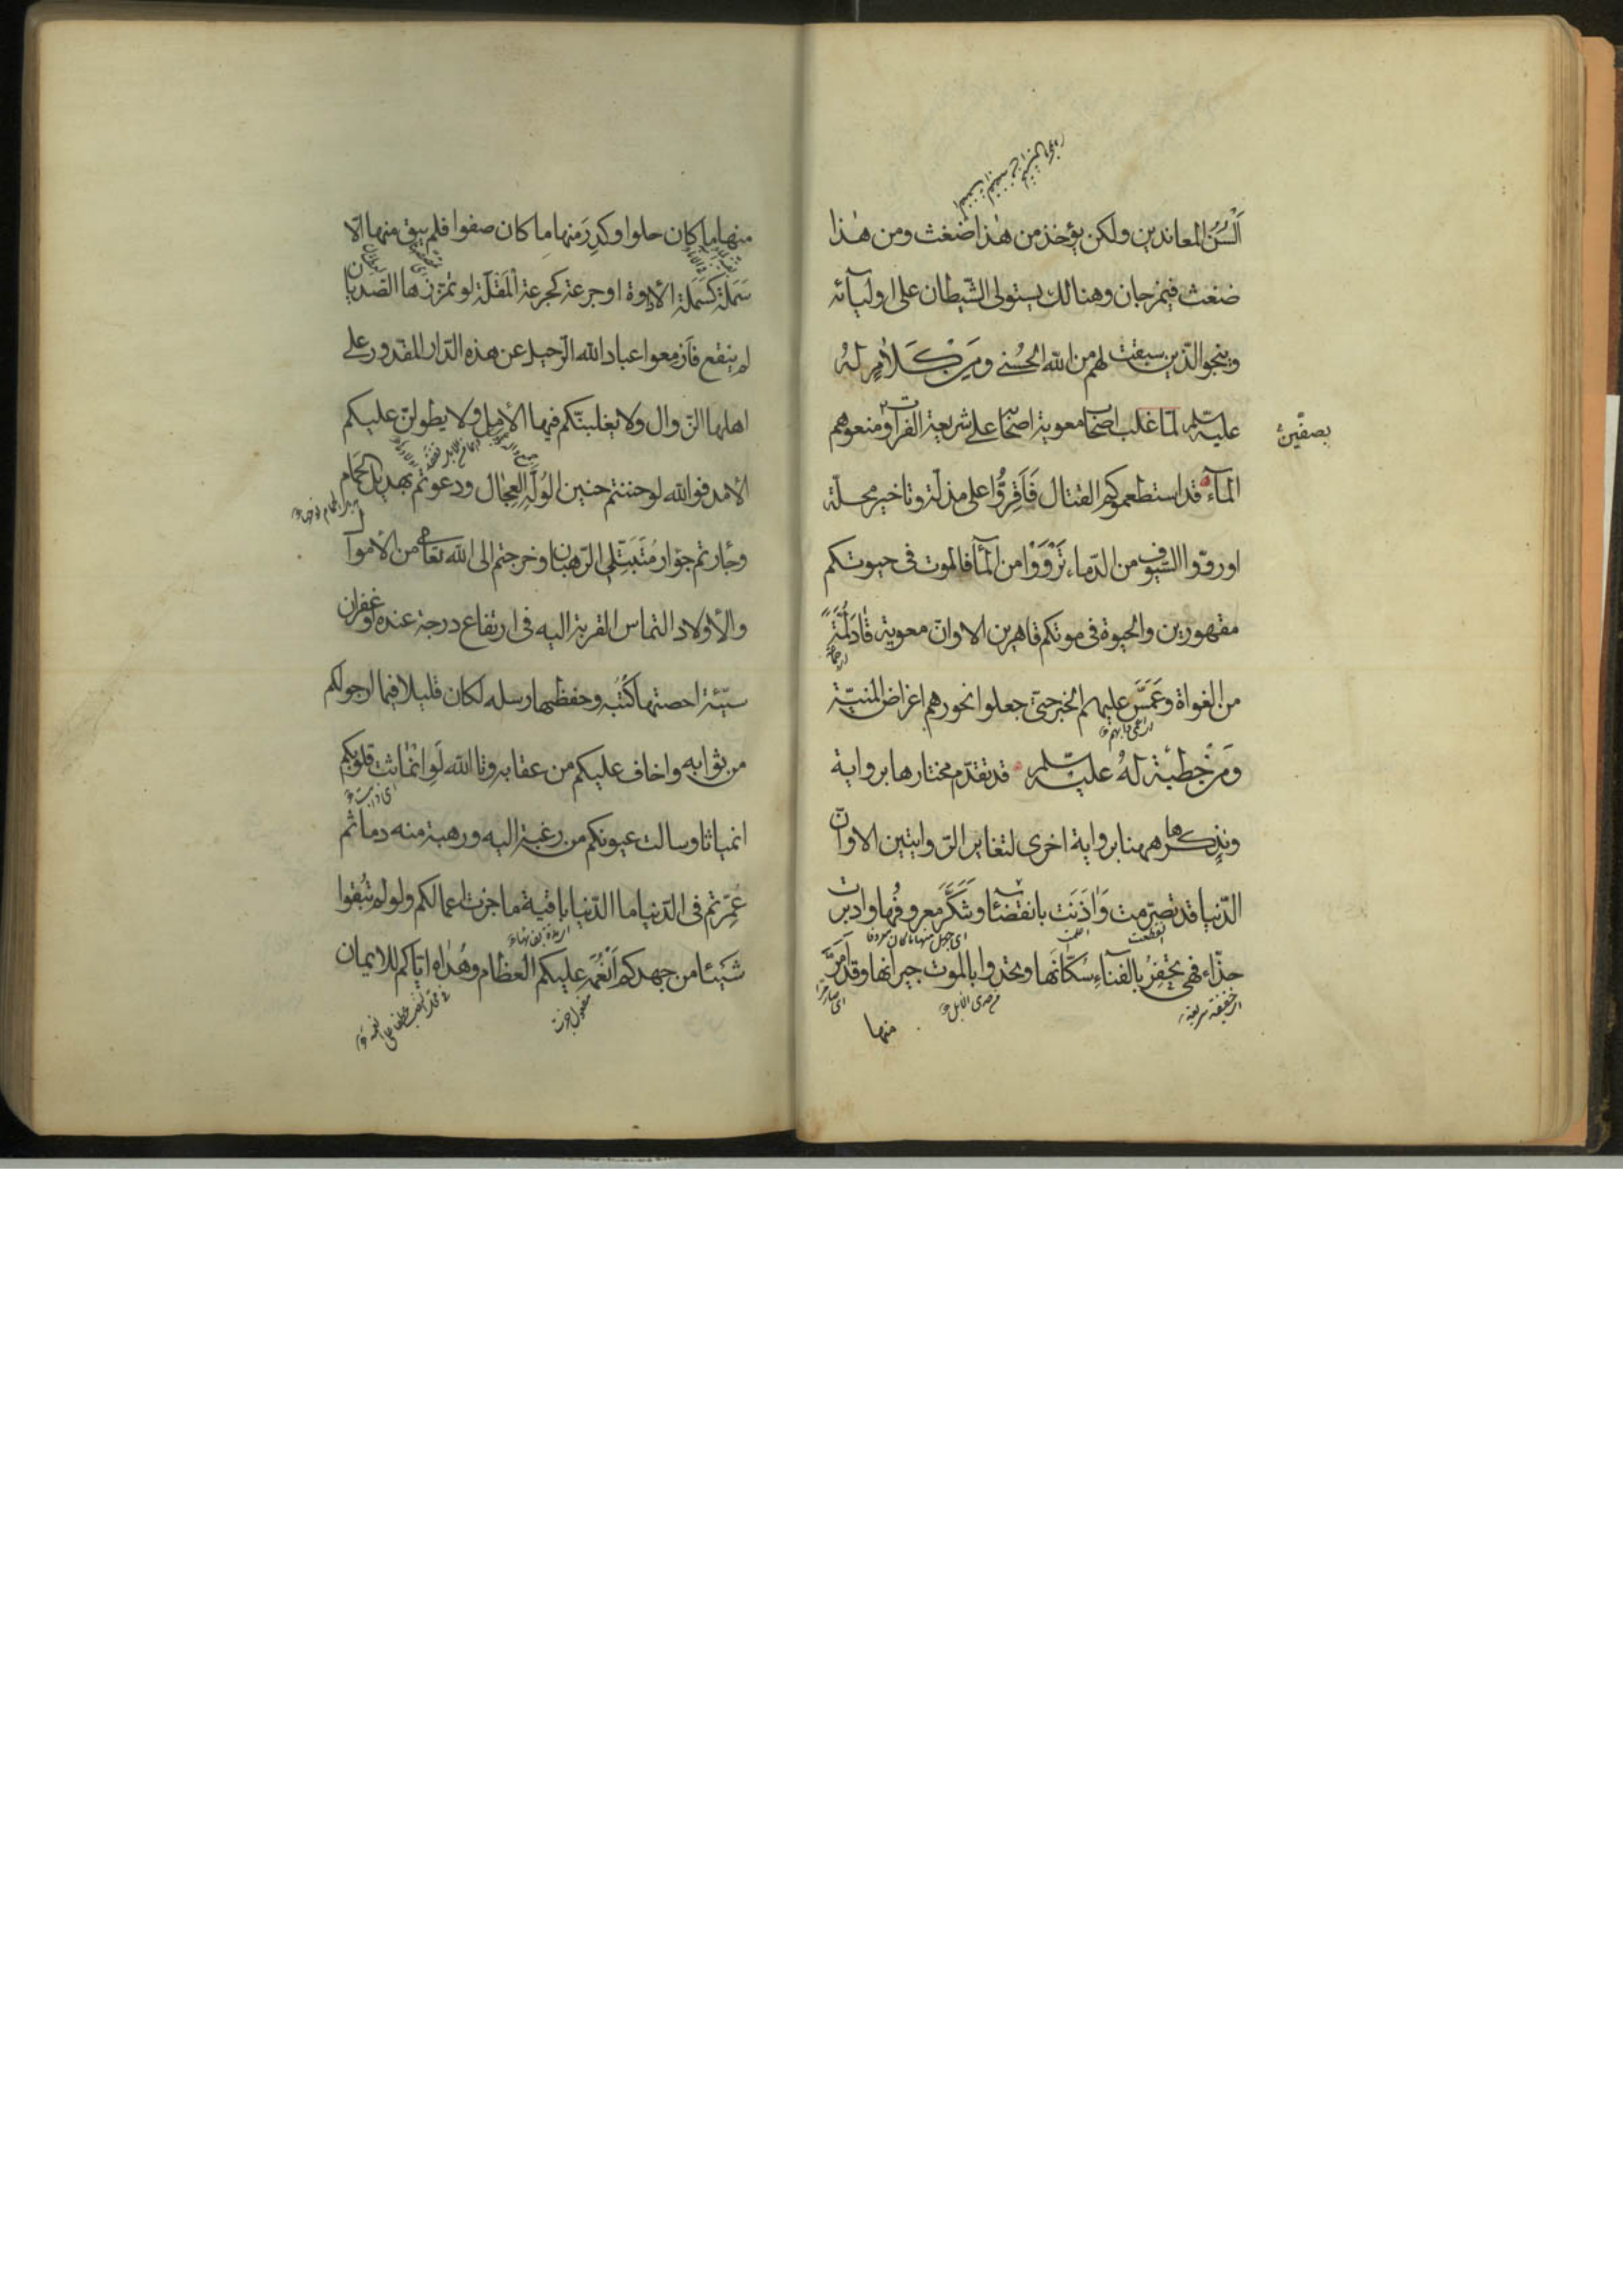 اَلْسُنُ المعاندين ولكن يؤخذ من هٰذا ضغث ومن هٰذا
ضغث فيمزجان وهنالك يستولى الشيطان على اوليآئه
وينجو الذين سبقت لهم من الله الحُسنى وَمِن كَلامٍ لَهُ
عليه السلم لمّا غلب اصحاب معوية اصحابه على شريعة الفرات ومنعوهم
بصفّين
المآء قد استطعموكم القتال فَاَقِرُّوا على مذلّة وتاخير محلّة
او روّوا السّيوف من الدّماء تَرْوَوْا من المآء فالموت فى حيوتكم
مقهورين والحيوة فى موتكم قاهرين الا وانّ معوية قادَ لُمَةً
من الغواة وعَمَسَّ عليهم الخبر حتى جعلوا نحورهم اغراض المنيّة
وَمِن خُطبَةٍ لَهُ عليه السلم قد تقدّم مختارها برواية
ونذكرها ههنا برواية اخرى لتغاير الرّوايتين الا وانّ
الدّنيا قد تصرّمت وَاٰذَنَت بانقضاء وتَنَكَّرَ معروفُها وادبرت
حذّاء فهى تحفِزُ بالفنآءِ سُكّانَها وتحدوا بالموت جيرانها وقد اَمَرَّ
منها
منها ما كان حلوا وكدِرَ منها ما كان صفوا فلم يبق منها الّا
سَمَلَة كَسَمَلة الاداوة او جرعة كجرعة المَقْلَة لو تمزّزها الصّديان
لم ينقع فَاَزمعوا عباد الله الرّحيل عن هذه الدّار المقدور على
اهلها الزّوال ولا يغلبنّكم فيها الامل ولا يطولنّ عليكم
الامد فوالله لو حننتم حنين الوُلَّهِ العِجَال ودعوتم بهديل الحَمام
وجأرتم جؤار مُتَبَتِّلى الرّهبان وخرجتم الى الله تعالى من الاموال
والأولاد التماس القربة اليه فى ارتفاع درجة عنده او غفران
سيّئة احصتها كُتُبه وحفظها رسله لكان قليلا فيما ارجو لكم
من ثوابه واخاف عليكم من عقابه وتالله لَوِ انْمَاثت قلوبكم
انمياثا وسالت عيونكم من رغبة اليه ورهبة منه دما ثم
عُمِّرتم فى الدّنيا ما الدّنيا باقية ما جزت اعمالكم ولو لم تُبقوا
شَيئا من جهدكم اَنْعُمَه عليكم العظام وهُداه ايّاكم للايمان